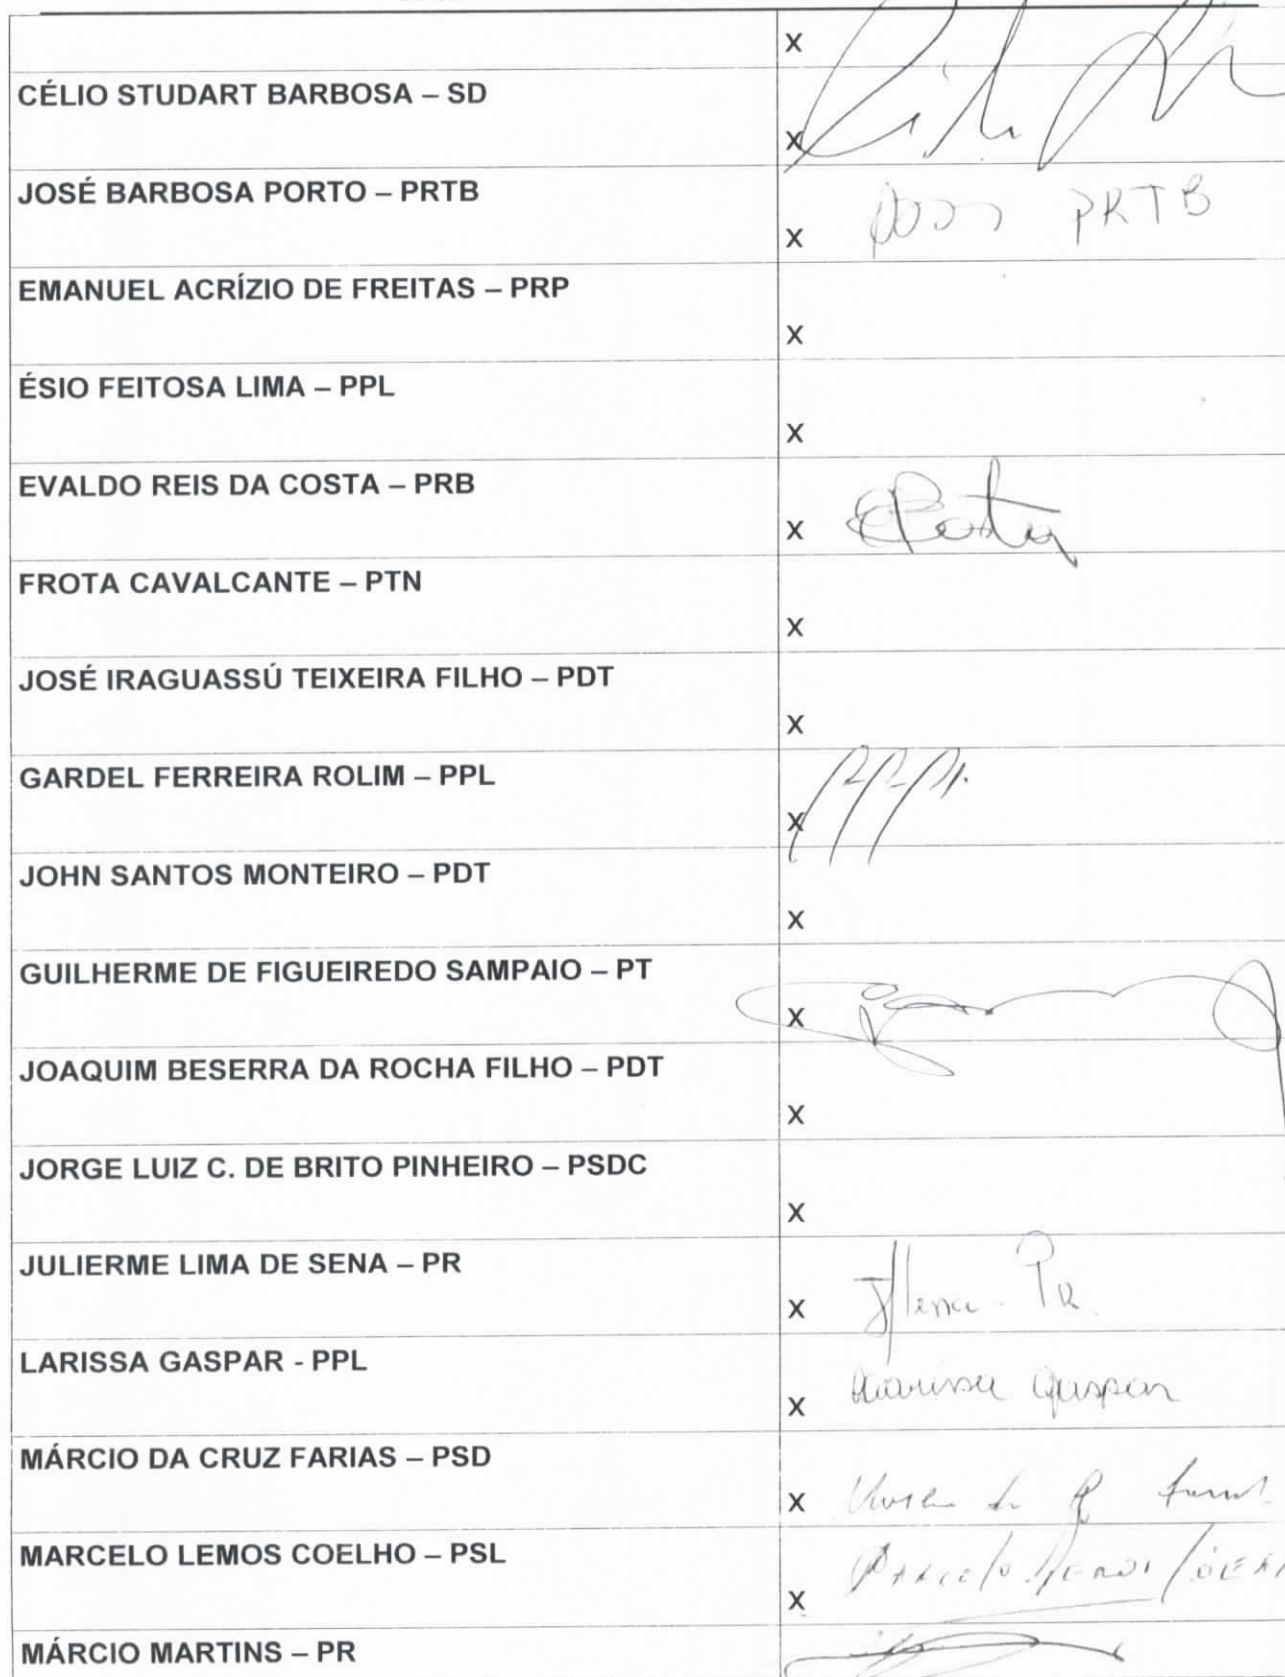 X
CÉLIO STUDART BARBOSA – SD
X
JOSÉ BARBOSA PORTO – PRTB
X PRTB
EMANUEL ACRÍZIO DE FREITAS – PRP
X
ÉSIO FEITOSA LIMA – PPL
X
EVALDO REIS DA COSTA – PRB
X ECosta
FROTA CAVALCANTE – PTN
X
JOSÉ IRAGUASSÚ TEIXEIRA FILHO – PDT
X
GARDEL FERREIRA ROLIM – PPL
X
JOHN SANTOS MONTEIRO – PDT
X
GUILHERME DE FIGUEIREDO SAMPAIO – PT
X
JOAQUIM BESERRA DA ROCHA FILHO – PDT
X
JORGE LUIZ C. DE BRITO PINHEIRO – PSDC
X
JULIERME LIMA DE SENA – PR
X
LARISSA GASPAR - PPL
X Larissa Gaspar
MÁRCIO DA CRUZ FARIAS – PSD
X
MARCELO LEMOS COELHO – PSL
X Marcelo Lemos
MÁRCIO MARTINS – PR